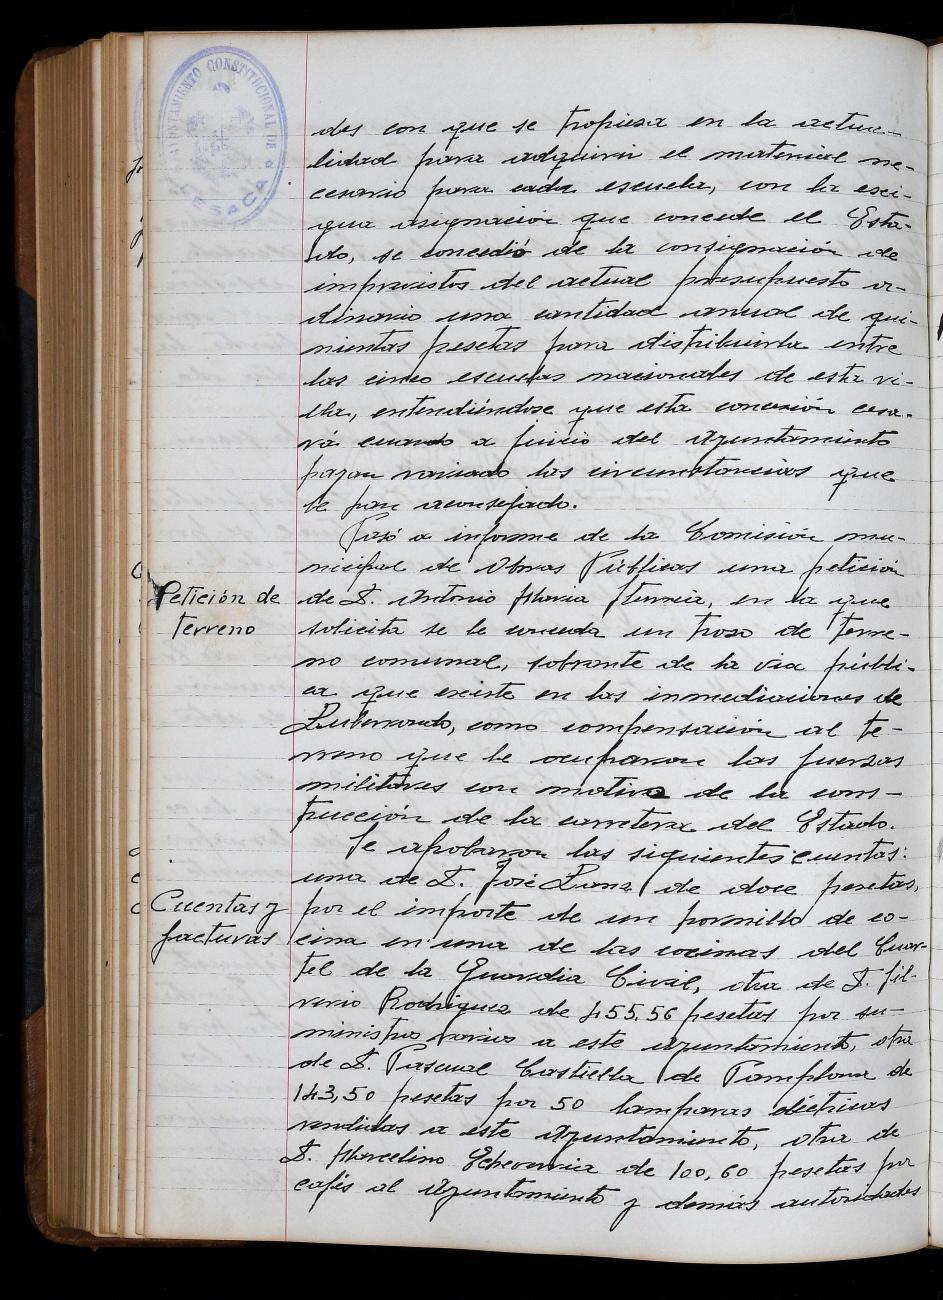 AYUNTAMIENTO CONSTITUCIONAL DE
LESACA
des con que se tropieza en la actua-
lidad para adquirir el material ne-
cesario para cada escuela, con la exi-
gua asignación que concede el Esta-
do, se concedió de la consignación de
imprevistos del actual presupuesto or-
dinario una cantidad anual de qui-
nientas pesetas para distribuirla entre
las cinco escuelas nacionales de esta vi-
lla, entendiéndose que esta concesión cesa-
rá cuando a juicio del Ayuntamiento
hayan variado las circunstancias que
le han aconsejado.
Pasó a informe de la Comisión mu-
nicipal de Obras Públicas una petición
Petición de
terreno
de D. Antonio Maria, en la que
solicita se le conceda un trozo de terre-
no comunal, sobrante de la via públi-
ca que existe en las inmediaciones de
como compensación al te-
rreno que le ocuparon las fuerzas
militares con motivo de la cons-
trucción de la carretera del Estado.
Se aprobaron las siguientes cuentas:
una de D. José Lanz de doce pesetas,
Cuentas y
facturas
por el importe de un hornillo de co-
cina en una de las cocinas del Cuar-
tel de la Guardia Civil, otra de D. Sil-
verio Rodriguez de 455,56 pesetas por su-
ministros varios a este Ayuntamiento, otra
de D. Pascual Castiella de Pamplona de
143,50 pesetas por 50 lamparas eléctricas
vendidas a este Ayuntamiento, otra de
D. Marcelino Echeverria de 100,60 pesetas por
cafés al Ayuntamiento y demás autoridades